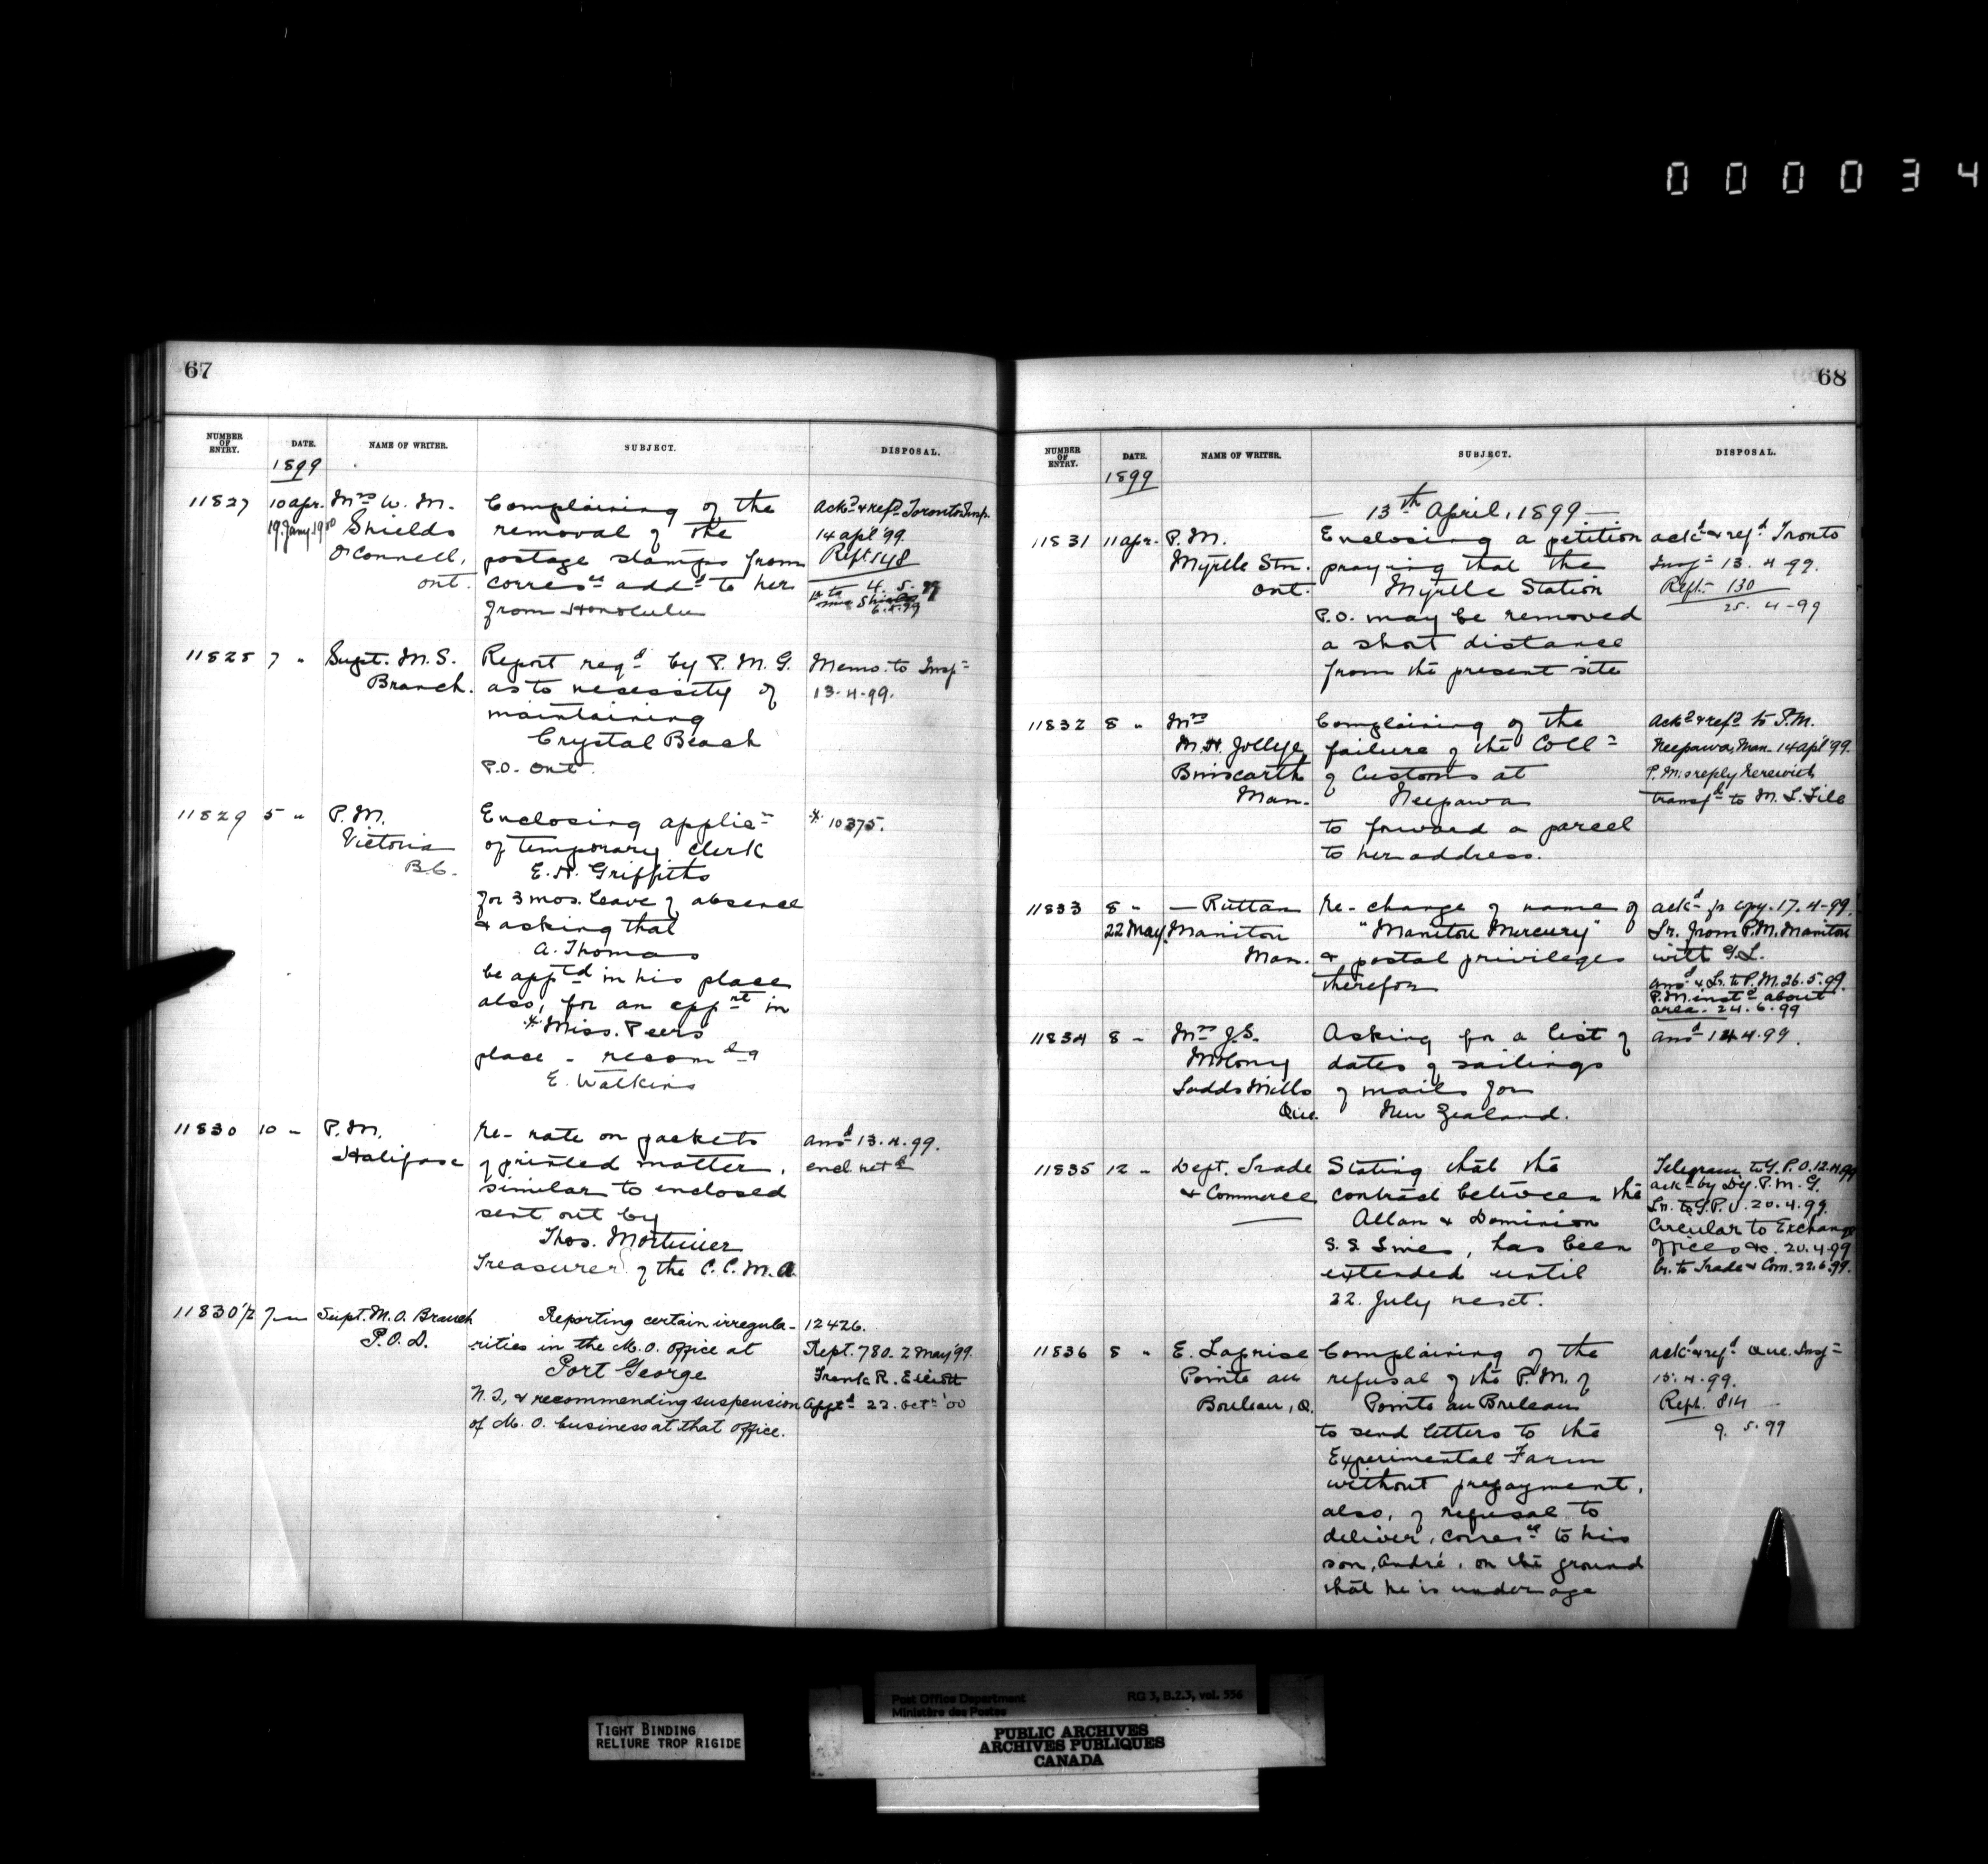 000034
67
NUMBER OF ENTRY. DATE. NAME OF WRITER. SUBJECT. DISPOSAL.
1899
11827 10 Apr. Mrs W. M. Complaining of the Ackd & refd Toronto Insp.
19. Jany 1900 Shields removal of the 14 apl '99.
O'Connell, postage stamps from Rept 148
Ont. corresce addd to her 4. 5. 99
from Honolulu 6.5.99
11828 7 " Supt. M.S. Report reqd by P. M. G. Memo. to Inspr
Branch. as to necessity of 13.4.99.
maintaining
Crystal Beach
P.O. Ont.
11829 5 " P.M. Enclosing applicn * 10375.
Victoria of temporary clerk
B.C. E. H. Griffiths
for 3 mos. leave of absence
& asking that
A. Thomas
be apptd in his place
also, for an appnt in
* Miss. Peers
place - recomdg
E. Watkins
11830 10 " P.M. Re- rate on packets ansd 13.4.99.
Halifax of printed matter, encl. retd
similar to enclosed
sent out by
Thos. Mortimer
Treasurer of the C.C.M.A.
11830 1/2 7 " Supt. M.O. Branch Reporting certain irregula- 12426.
P.O.D. rities in the M.O. Office at Rept. 780. 2 May '99
Port George Frank R. Elliott
N.S, & recommending suspension Apptd 22. Oct. '00
of M. O. business at that Office.
68
NUMBER OF ENTRY. DATE. NAME OF WRITER. SUBJECT. DISPOSAL.
1899
— 13th April, 1899 —
11831 11 Apr. P.M. Enclosing a petition ackd & refd Tronto
Myrtle Stn. praying that the Inspr 13. 4. 99.
Ont. Myrtle Station Rept. 130
P.O. may be removed 25. 4 -99
a short distance
from the present site
11832 8 " Mrs Complaining of the Ackd & refd to P.M.
M.H. Jollye, failure of the Collr Neepawa, Man. 14 apl '99.
Binscarth of Customs at P.M.s reply herewith
Man. Neepawa transfd to M. L. File
to forward a parcel
to her address.
11833 8 " — Ruttan Re- change of name of ackd fr copy. 17. 4-99.
22 May. Manitou "Manitou Mercury" Lr. from P.M. Manitou
Man. & postal privileges with G.L.
therefor ansd & Lr. to P.M. 26.5.99.
P.M. instd about
area. 24.6.99
11834 8 " Mrs J.S. Asking for a list of ansd 14.4.99.
dates of sailings
Ladds Mills of mails for
Que. New Zealand.
11835 12 " Dept. Trade Stating that the Telegram to G.P.O. 12.4.99
& Commerce contract between the ackd by Dy. P. M. G.
Allan & Dominion Lr. to G.P.O. 20.4.99.
S.S. Lines, has been Circular to Exchange
extended until offices &c. 20.4.99
22. July next. Lr. to Trade & Com. 22.6.99.
11836 8 " E. Laprise Complaining of the ackd & refd Que. Inspr
Pointe au refusal of the P.M. of 15.4.99.
Bouleau, Q. Pointe au Bouleau Rept. 814
to send letters to the 9. 5. 99
Experimental Farm
without prepayment,
also, of refusal to
deliver, corresce to his
son, André, on the ground
that he is under age
TIGHT BINDING
RELIURE TROP RIGIDE
Post Office Department RG 3, B.2.3, vol. 556
Ministère des Postes
PUBLIC ARCHIVES
ARCHIVES PUBLIQUES
CANADA